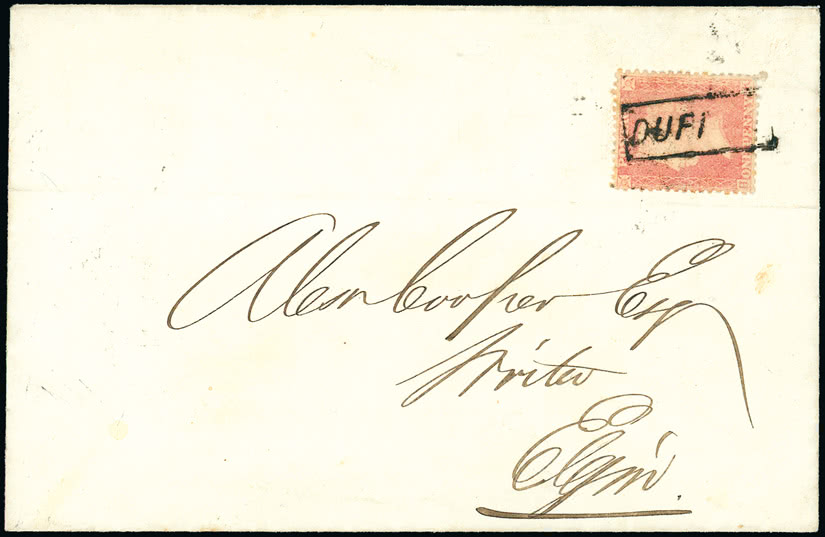 DUFF
Alexr Cooper Esq
Writer
Elgin